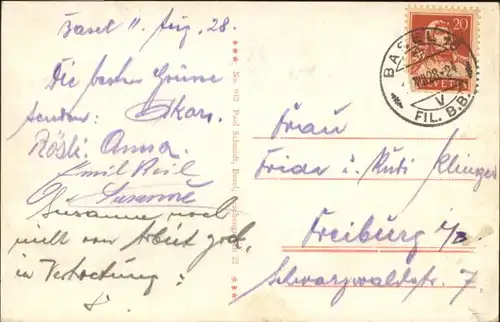 Basel 11. Aug. 28.
Die besten Grüsse
senden: Oskar.
Rösli Anna.
Emil Reil
Susanne
Susanne noch
nicht von Arbeit zck.
in Vertretung:
No 945 Paul Schmidt, Basel
20
HELVETIA
BASEL 2
V
FIL. B.B.
Frau
Frida u. Rudi Klinger
Freiburg i/B
Schwarzwaldstr. 7.